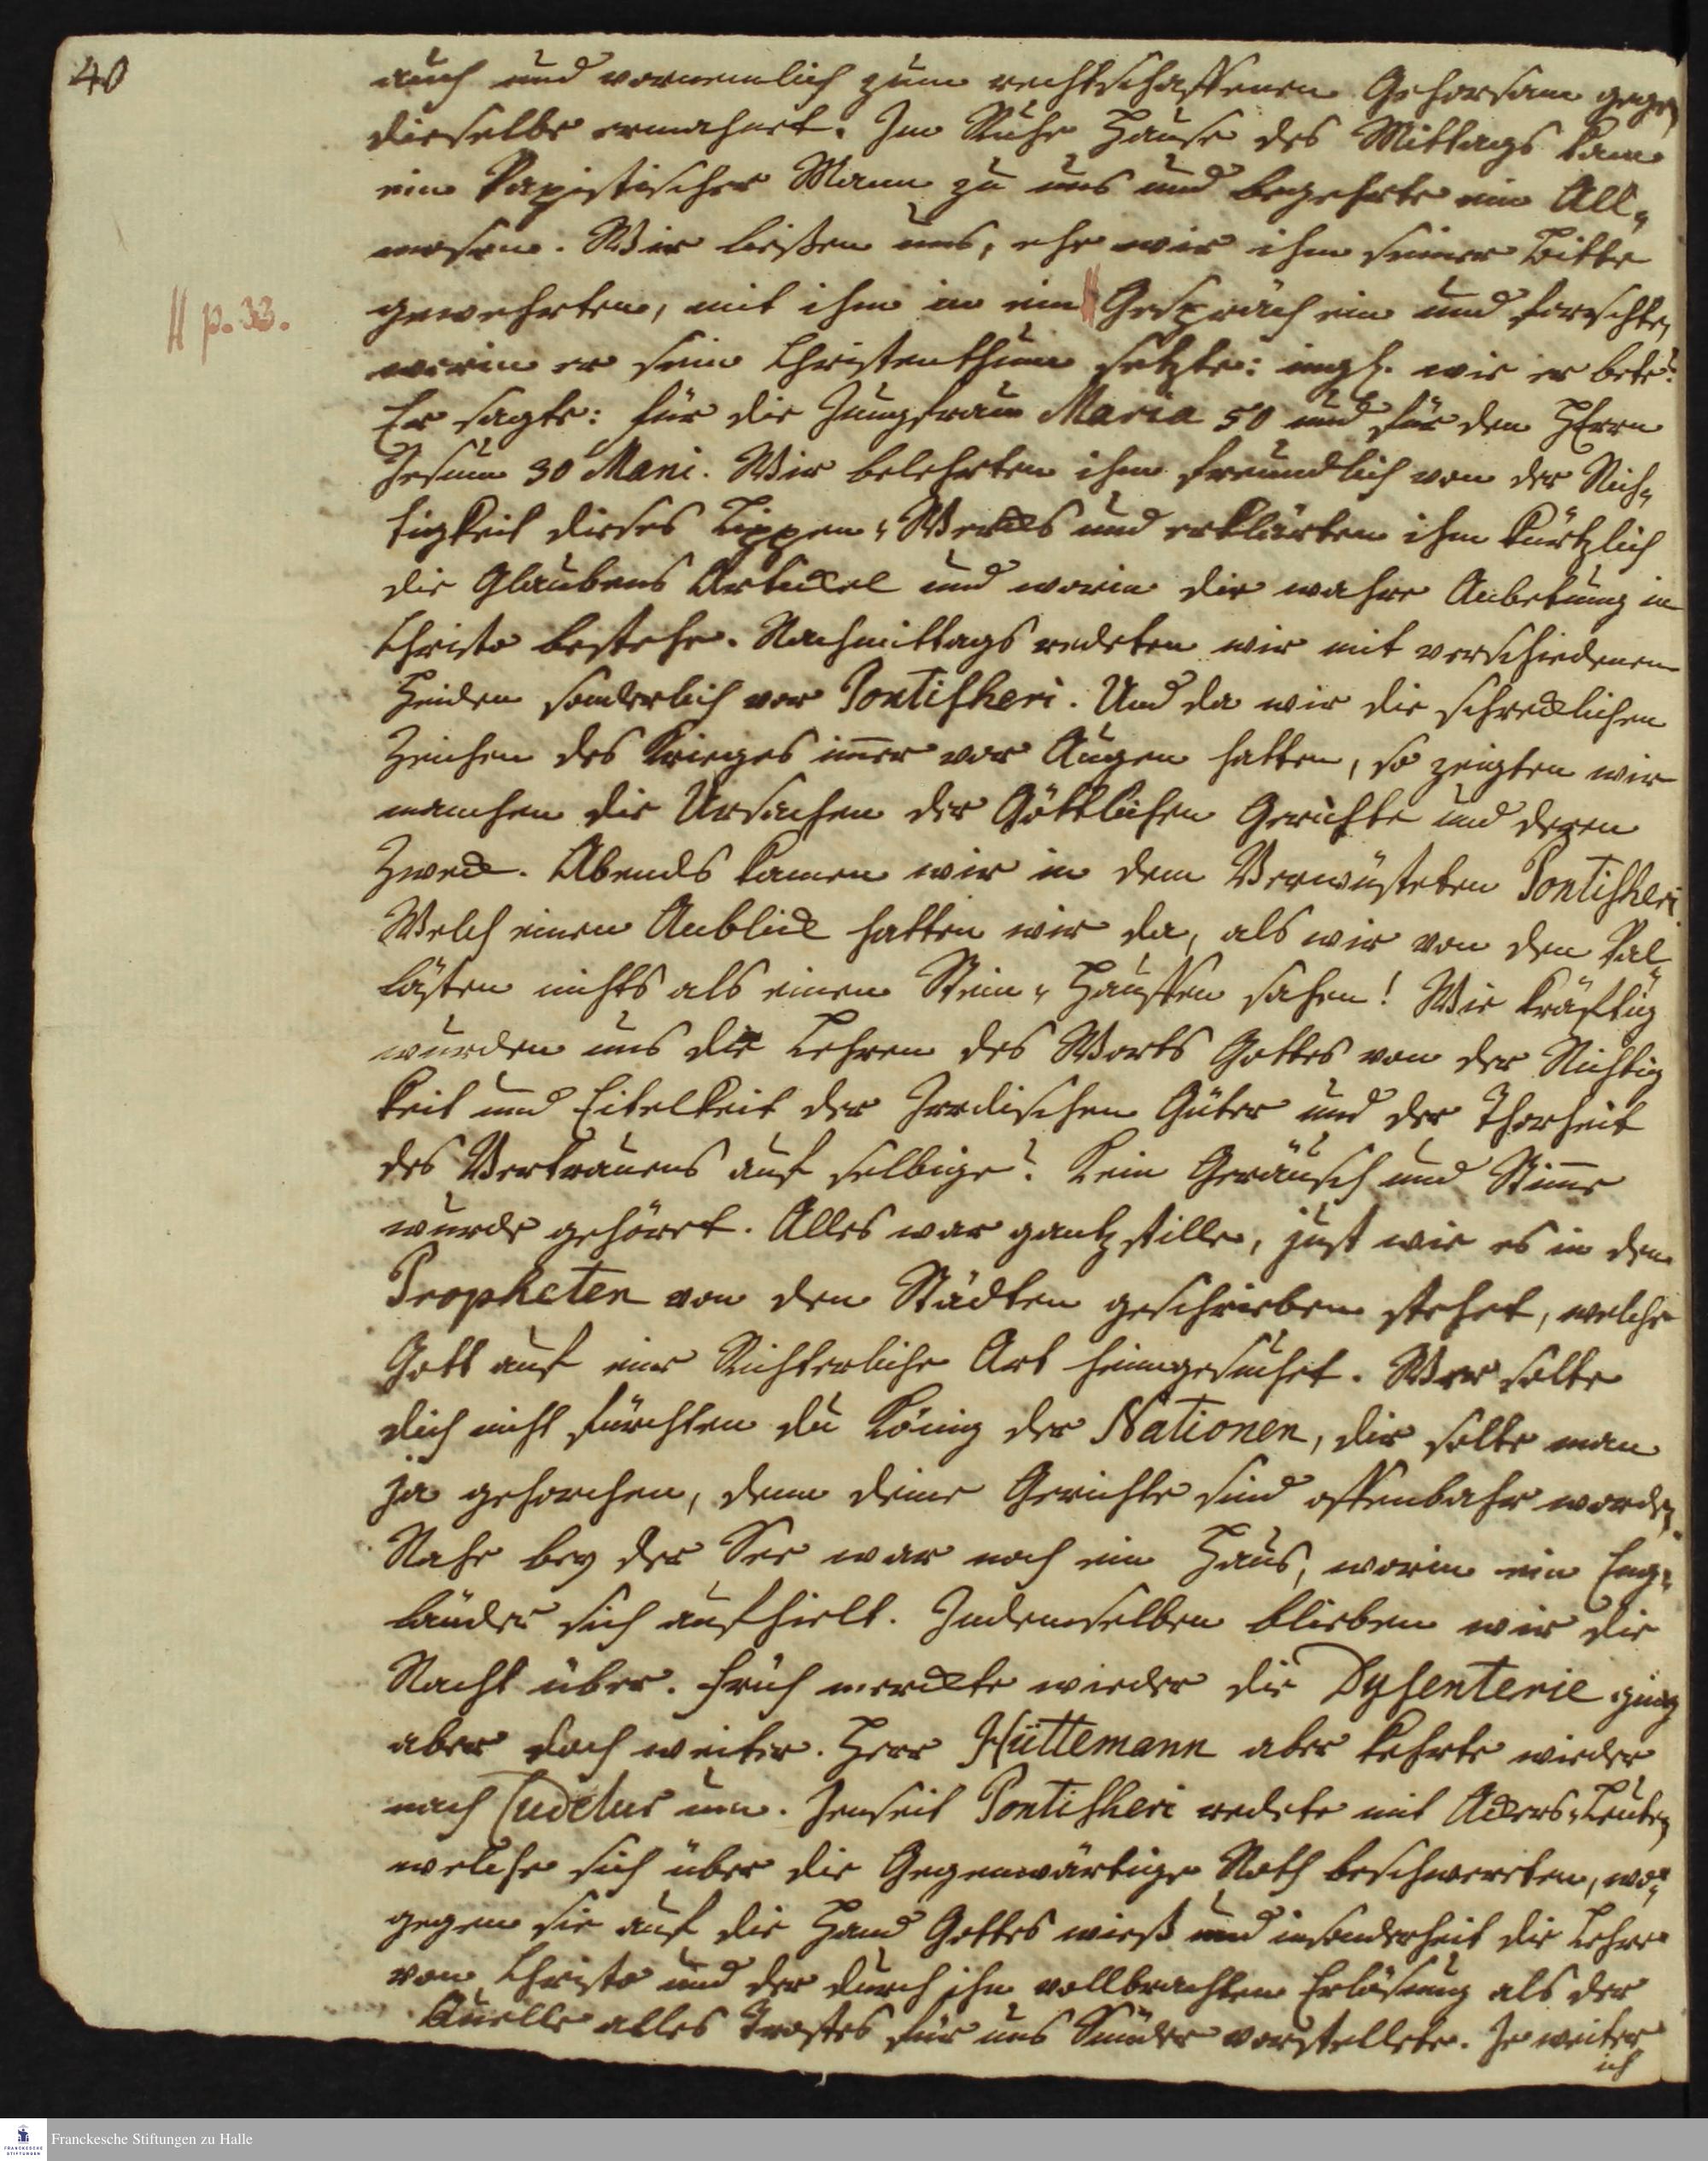 40
auch und vornemlich zum rechtschaffenen Gehorsam gegen
dieselbe ermahnet. Im Ruhe Hause des Mittags kam
ein Papistischer Mann zu uns und begehrte ein All-
mosen. Wir ließen uns, ehe wir ihm seiner Bitte
gewehrten, mit ihm in ein Gespräch ein und forschten
// p. 33.
worin er sein Christenthum setzte: ingl. wie er bete?
Er sagte: für die Jungfrau Maria 50 und für den HErrn
Jesum 30 Mani. Wir belehrten ihn freundlich von der Nich-
tigkeit dieses Lippen-Werckes und erklärten ihm kürtzlich
die Glaubens Artickel und worin die wahre Anbetung in
Christo bestehe. Nachmittags redeten wir mit verschiedenen
Heiden sonderlich vor Pontischeri. Und da wir die schrecklichen
Zeichen des Krieges im̄er vor Augen hatten, so zeigten wir
manchen die Ursachen der Göttlichen Gerichte und deren
Zweck. Abends kamen wir in dem Verwüsteten Pontischeri
Welch einen Anblick hatten wir da, als wir von den Pal-
lästen nichts als einen Stein-Hauffen sahen! Wie kräftig
wurden uns die Lehren des Worts Gottes von der Nichtig
keit und Eitelkeit der Irrdischen Güter und der Thorheit
des Vertrauens auf selbige? Kein Geräusch und Stim̄e
wurde gehöret. Alles war gantz stille, just wie es in den
Propheten von den Städten geschrieben stehet, welche
Gott auf eine Richterliche Art heimgesuchet. Wer solte
dich nicht fürchten du König der Nationen, dir solte man
ja gehorchen, denn deine Gerichte sind offenbahr worden.
Nahe bey der See war noch ein Haus, worin ein Eng-
länder sich aufhielt. In demselben blieben wir die
Nacht über. Früh merckte wieder die Dysenterie, ging
aber doch weiter. Herr Hüttemann aber kehrte wieder
nach Cudelur um. Jenseit Pontischeri redete mit Ackers-Leuten
welche sich über die Gegenwärtige Noth beschwerten, wo-
gegen sie auf die Hand Gottes wieß und insonderheit die Lehre
von Christo und der durch ihn vollbrachten Erlösung als der
Quelle alles Trostes für uns Sünder vorstellete. Je weiter
ich
Franckesche Stiftungen zu Halle